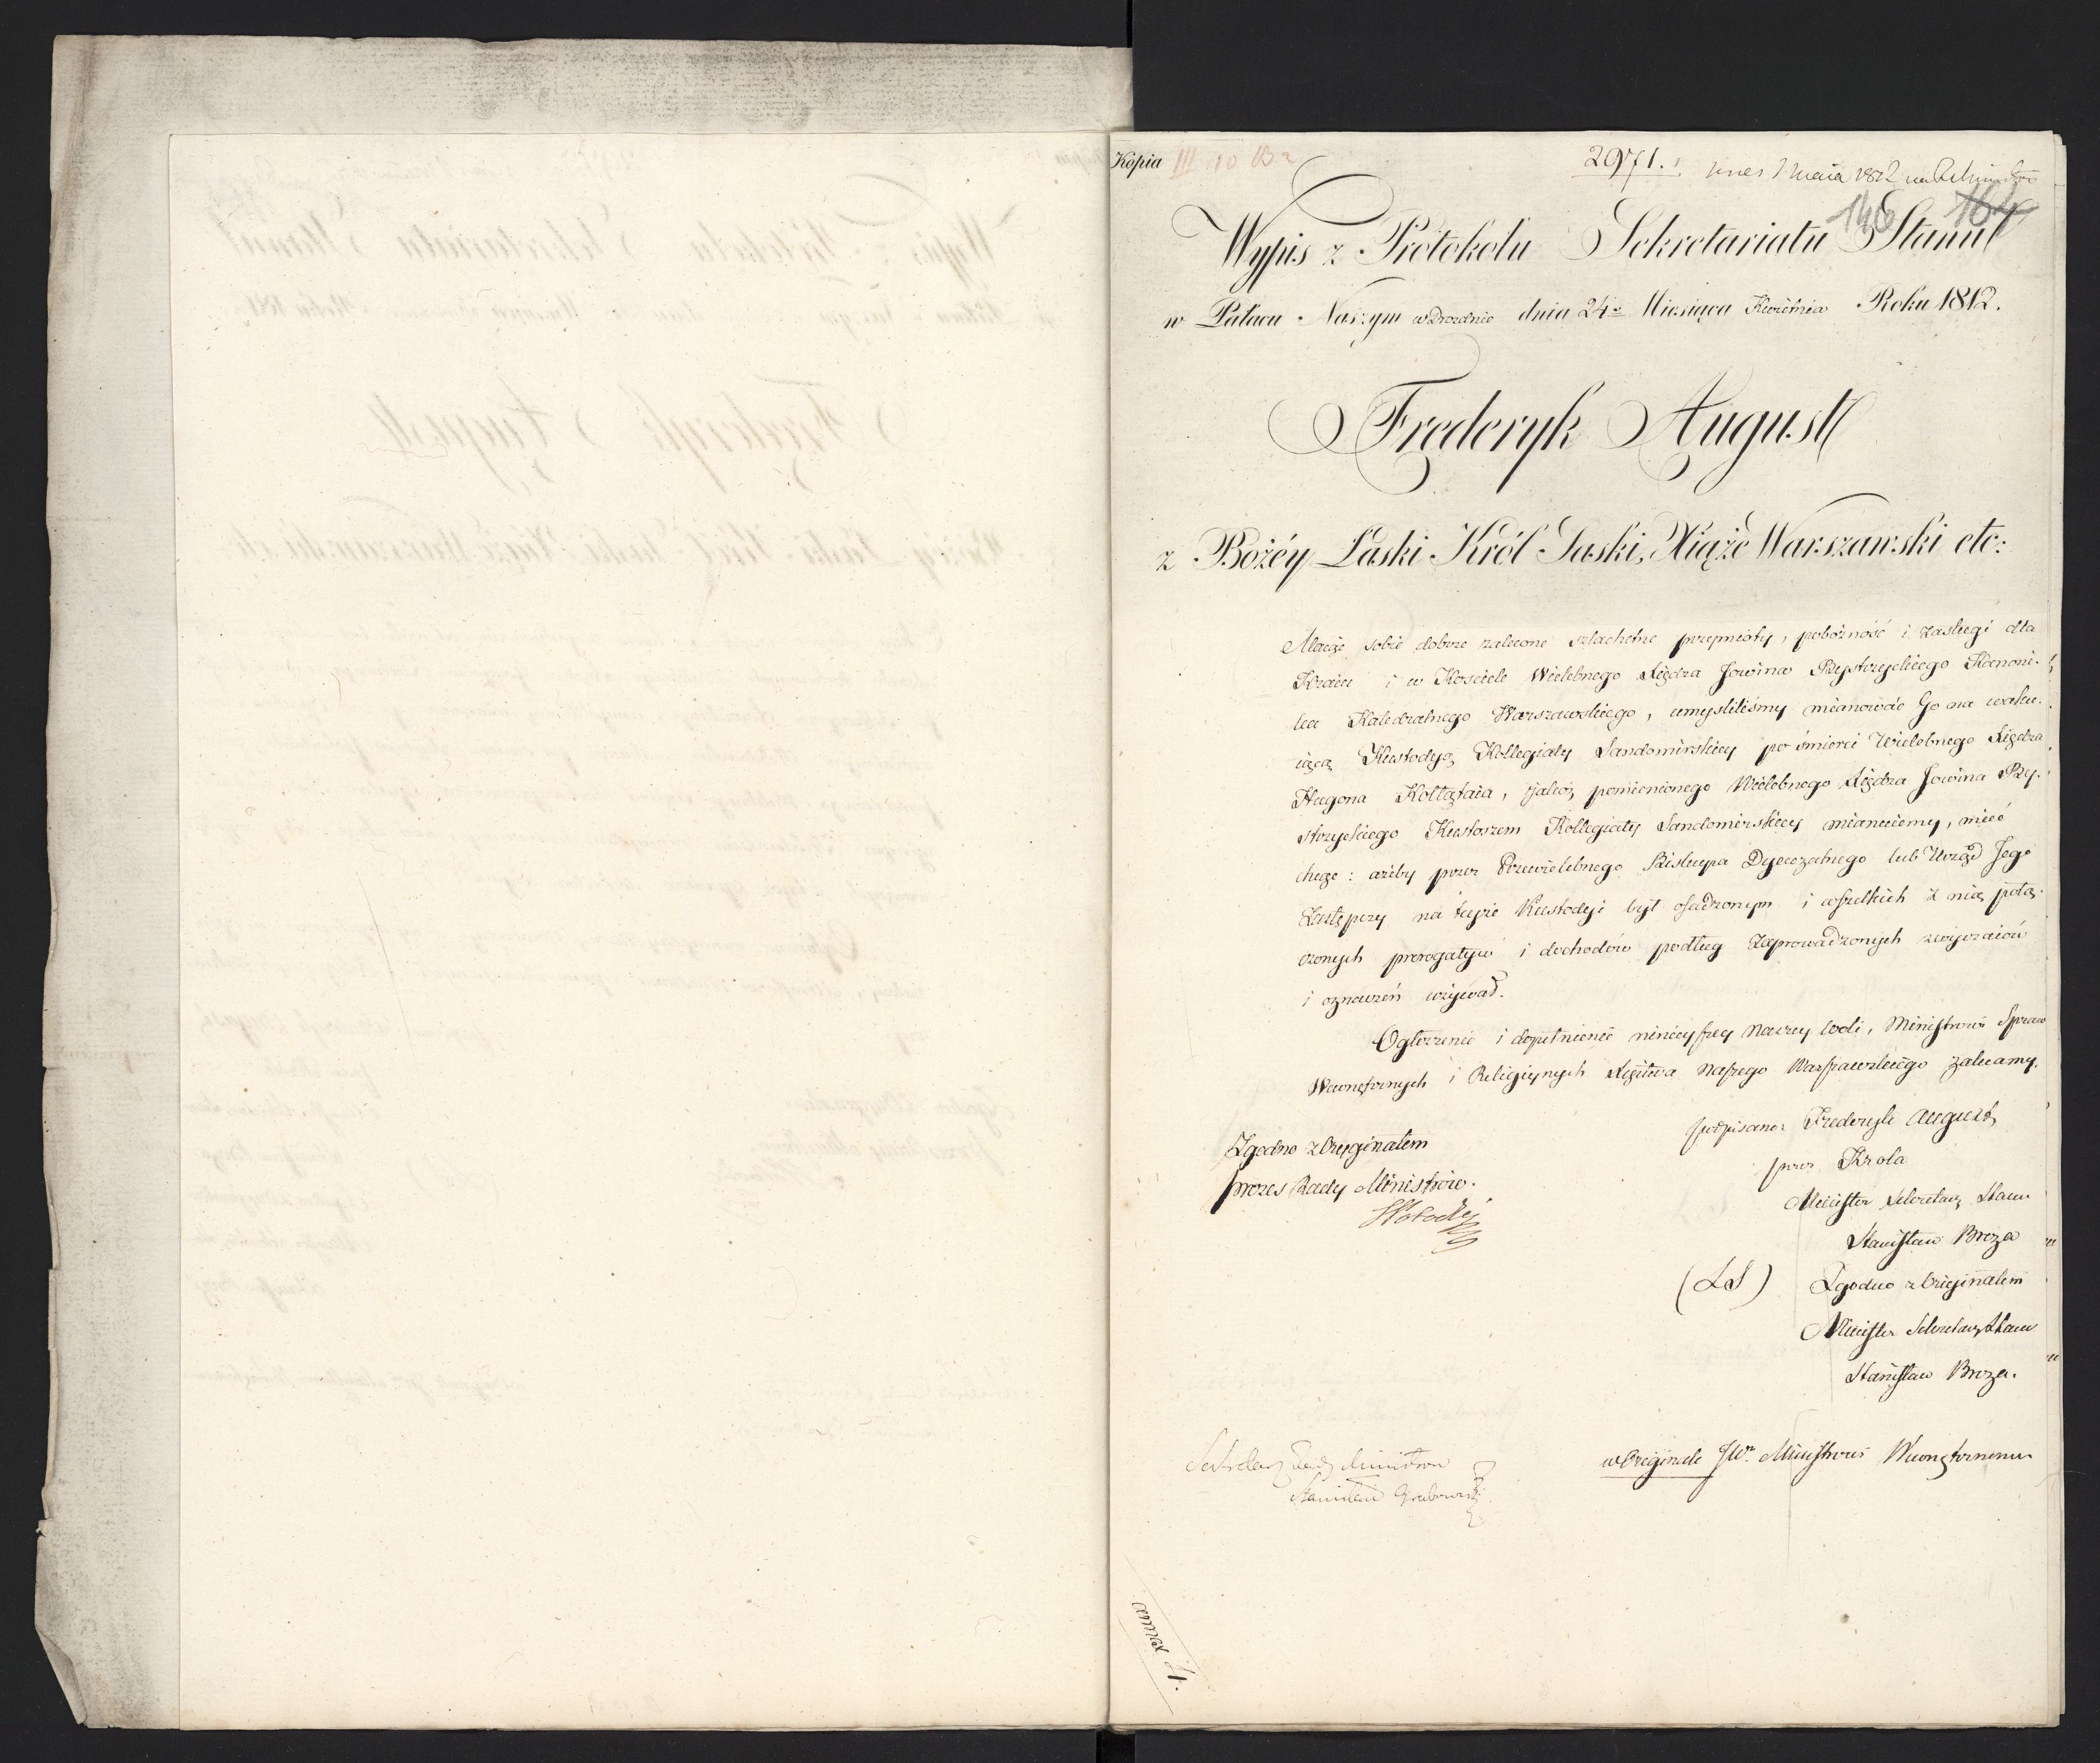 Kopia III 10 B 2
2971. wnes 7 maia 1812 na R Ministrów
146 164
Wypis z Protokołu Sekretariatu Stanu
w Pałacu Naszym w Dreznie dnia 24º Miesiąca Kwietnia Roku 1812.
Frederyk August
z Bożéy Łaski Król Saski, Xiąże Warszawski etc:
Maiąc sobie dobrze zalecone szlachetne przymioty, pobożność i zasługi dla
Kraiu i w Kościele Wielebnego Xiędza Jowina Bystrzyckiego Kanoni-
ka Katedralnego Warszawskiego, umyśliliśmy mianować Go na waku-
iącą Kustodyą Kollegiaty Sandomirskiey po śmierci Wielebnego Xiędza
Hugona Kołłątaia, jakoż pomienionego Wielebnego Xiędza Jowina By-
strzyckiego Kustoszem Kollegiaty Sandomirskiey mianuiemy, mieć
chcąc: ażeby przez Przewielebnego Biskupa Dyecezalnego lub Urząd Jego
Zastępczy na teyże Kustodyi był osadzonym i wszelkich z nią połą-
czonych prerogatyw i dochodów podług zaprowadzonych zwyczaiów
i oznaczeń używał.
Ogłoszenie i dopełnienie ninieyszey Naszey woli, Ministrowi Spraw
Wewnętrznych i Religiynych Xięstwa Naszego Warszawskiego zalecamy.
podpisano: Frederyk August,
przez Króla
Minister Sekretarz Stanu
Stanisław Breza
(LS) Zgodno z Oryginałem
Minister Sekretarz Stanu
Stanisław Breza.
Zgodno z Oryginałem
Prezes Rady Ministrów.
SPotocki
w Oryginale JWº Ministrowi Wewnętrznemu
Sekretarz Rady Ministrów
Stanisław Grabowski
annex 4.